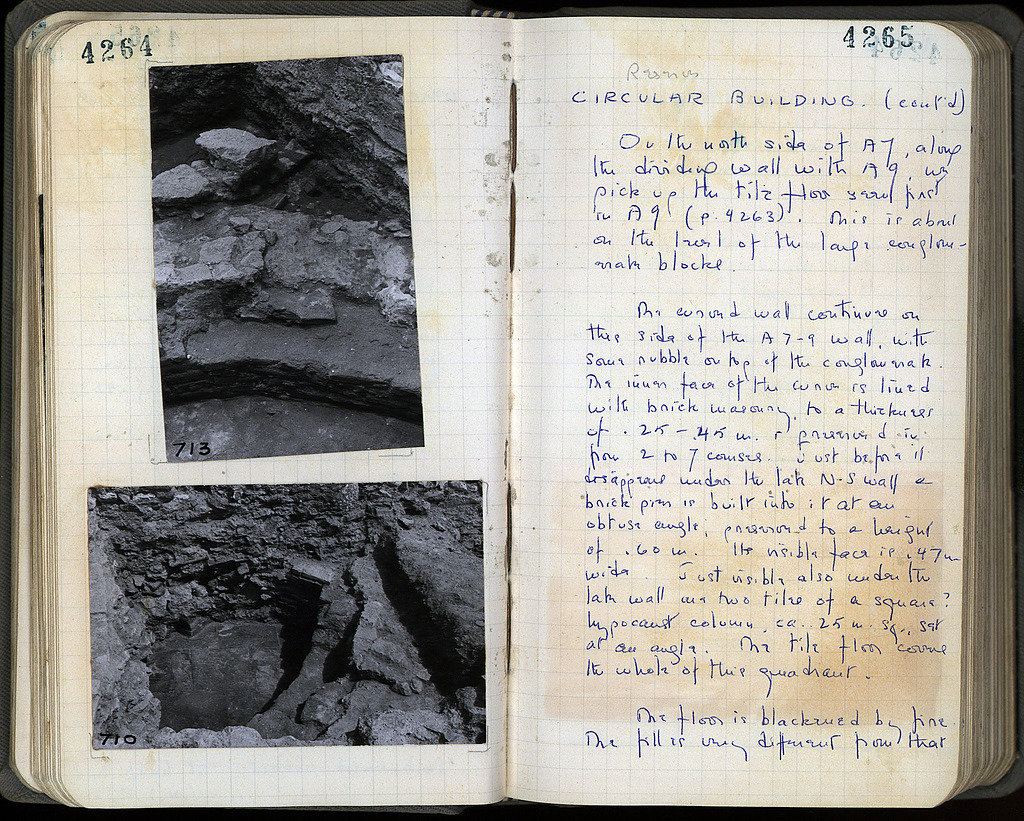 4264
713
710
4265
CIRCULAR BUILDING. (cont'd)
On the north side of A7, along
the dividing wall with A9, we
pick up the tile floor seen first
in A9 (p. 4263). This is about
on the level of the large conglom-
erate blocks.
The curved wall continues on
this side of the A7-9 wall, with
some rubble on top of the conglomerate.
The inner face of the curve is lined
with brick masonry, to a thickness
of .25-.45 m. & preserved in
from 2 to 7 courses. Just before it
disappears under the late N-S wall a
brick pier is built into it at an
obtuse angle, preserved to a height
of .60 m. Its visible face is .47 m
wide. Just visible also under the
late wall are two tiles of a square?
hypocaust column, ca. 25 m. sq., set
at an angle. The tile floor covers
the whole of this quadrant.
The floor is blackened by fire.
The fill is very different from that